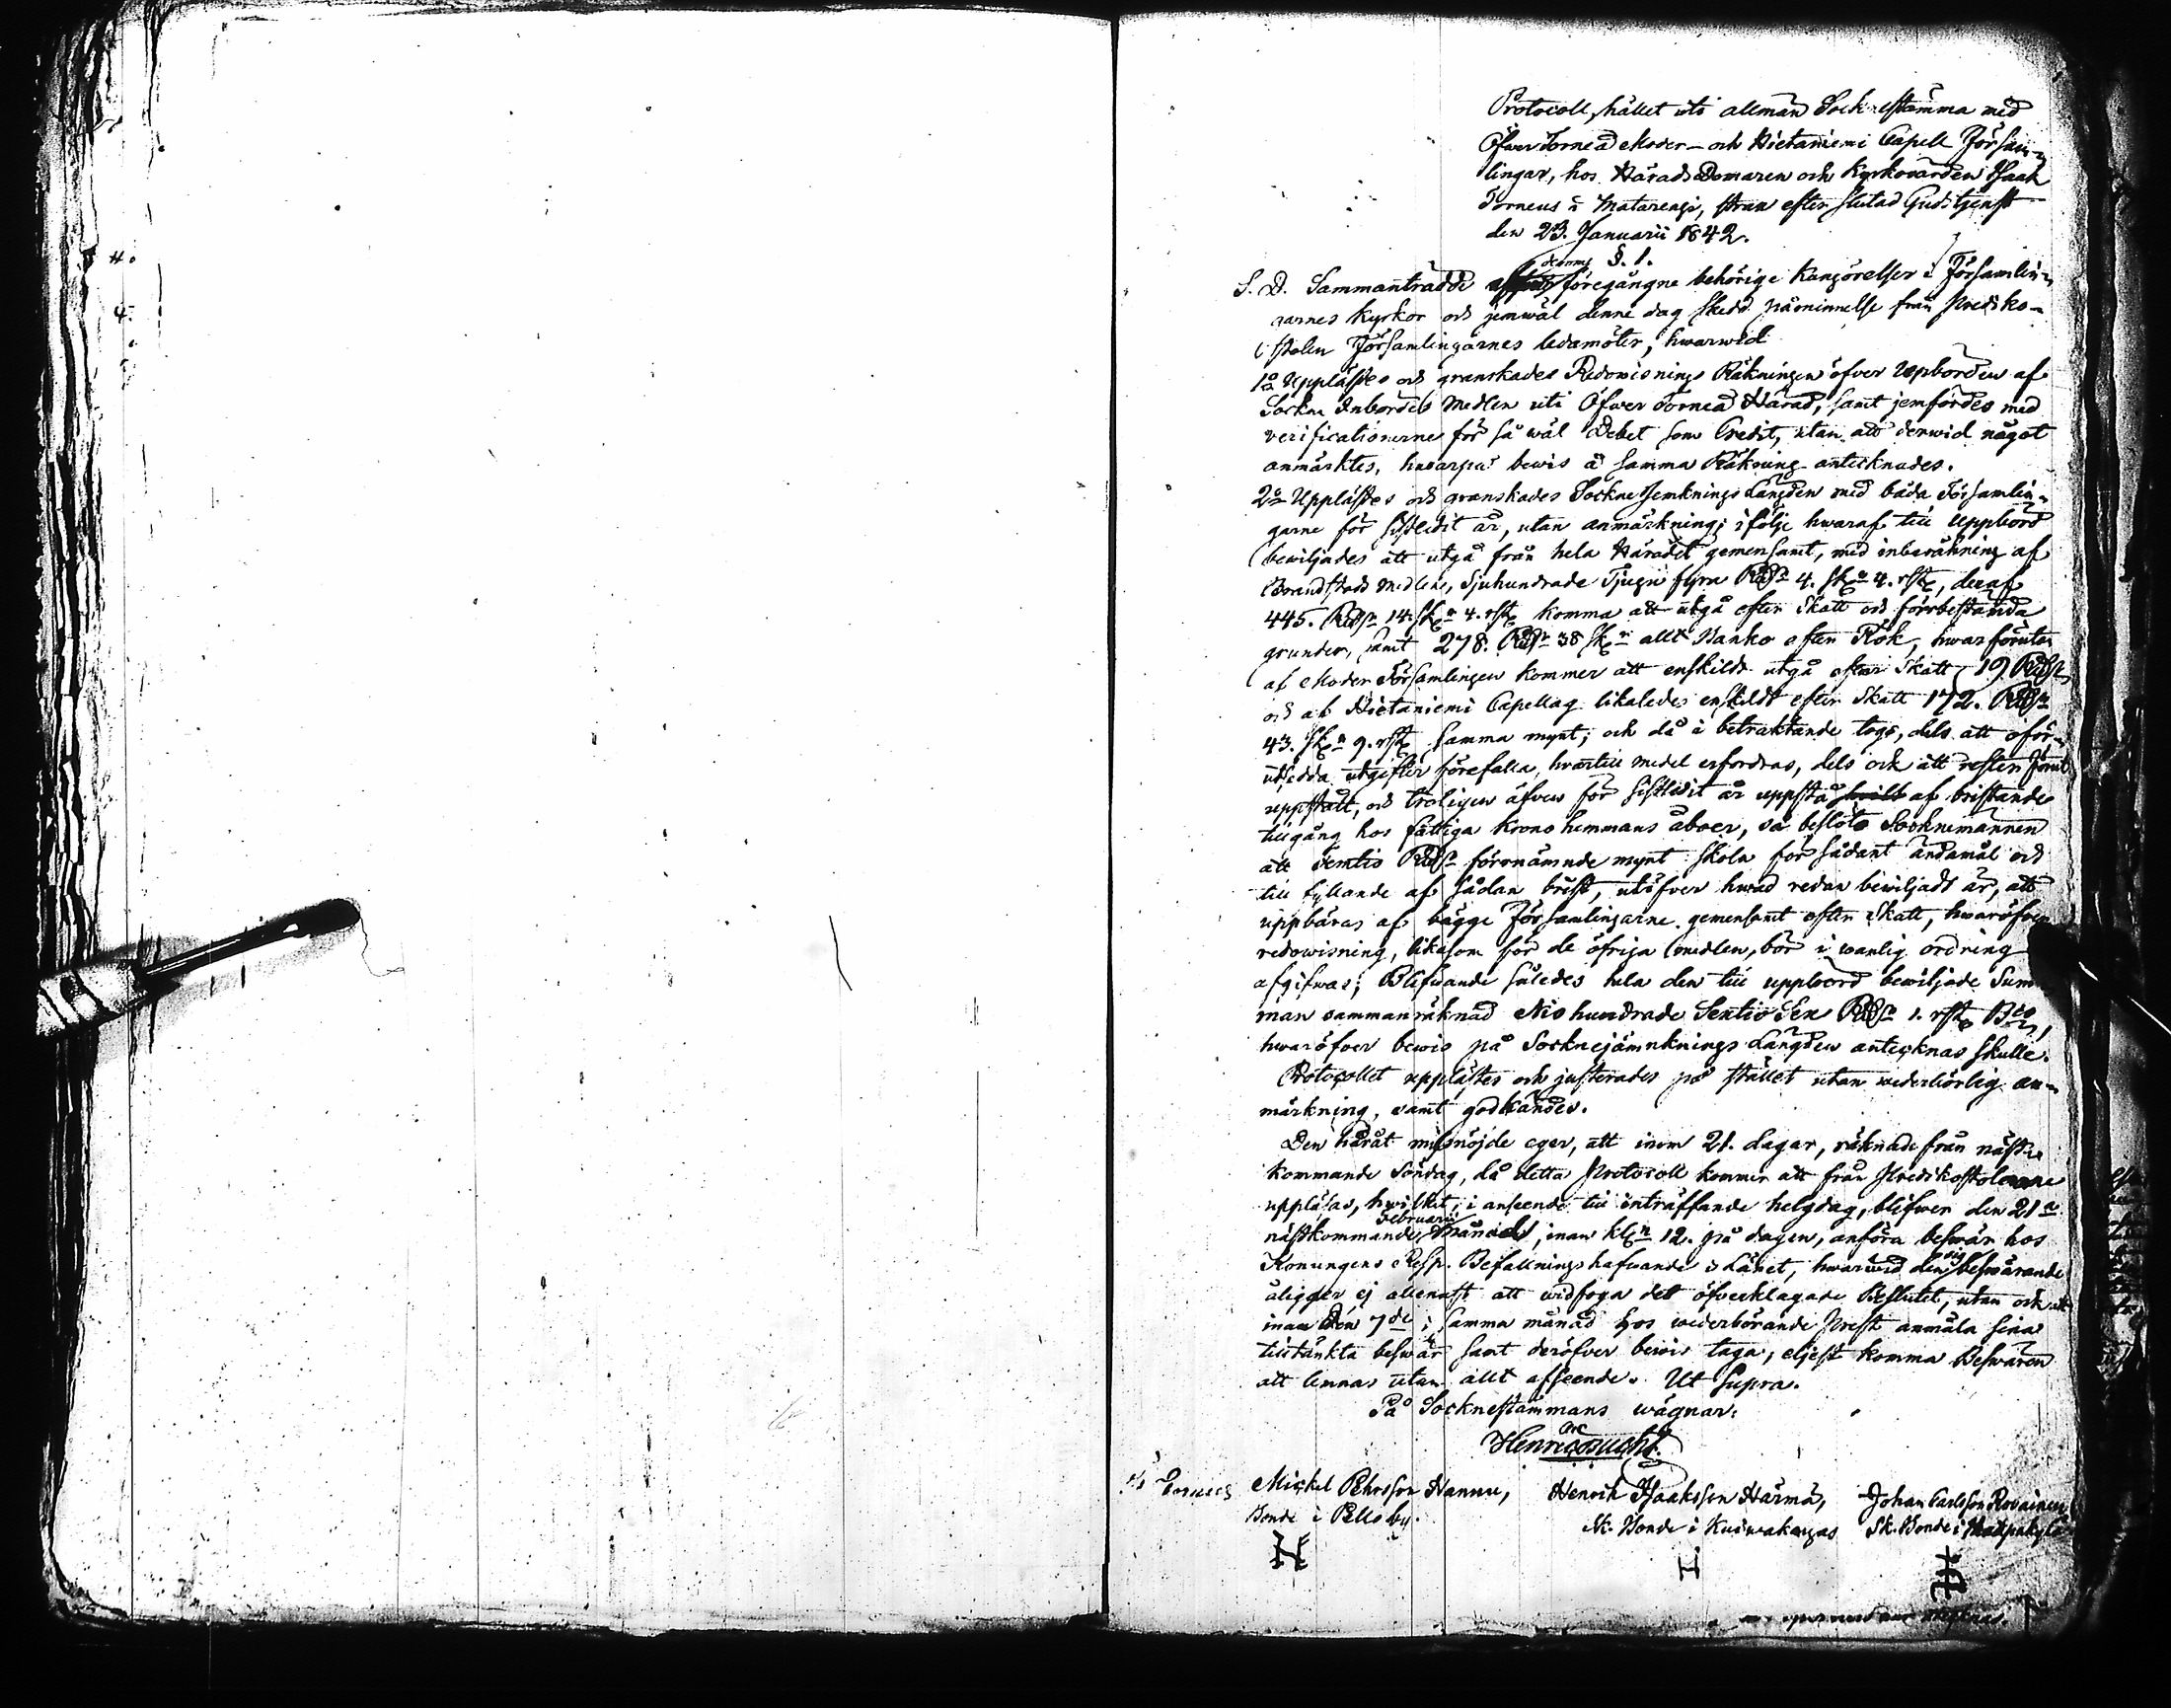 Protocoll, hållet uti allmän Socknestämma med
ÖfwerTorneå Moder- och Hietaniemi Capell Försam-
lingar, hos HäradsDomaren och Kyrkovärden Isaak
Torneus i Matarengi, strax efter slutad Gudstjenst
den 23. Januarii 1842.
§. 1.
S. D. Sammanträdde föregångne behörige kungörelser i Församlin-
garnes Kyrkor och jemwäl denne dag skedd påminnelse från Prediko-
stolen Församlingarnes ledamöter, hwarwid
1o Upplästes och granskades Redowisnings Räkningen öfver Uppbörden af
Sockne Inbördes Medlen uti Öfwer Torneå Härad, samt jemfördes med
verificationerne för så wäl Debet som Credit, utan att derwid något
anmärktes, hwarpå bewis å samma Räkning antecknades.
2o Upplästes och granskades Sockne Jemknings Längden med båda Församlin-
garne för sistledit år, utan anmärkning; i följe hwaraf till Uppbörd
bewiljades att utgå från hela Häradet gemensamt, med inberäkning af
Brandstods Medlen, Sjuhundrade Tjugu fyra RDr 4. sk. 4. rst, deraf
445. RDr 14. sk. 4. rst. komma att utgå efter Skatt och förrbestämda
grunder, samt 278. RDr 38 sk. allt Banko efter Rök, hwarförutan
af Moder Församlingen kommer att enskildt utgå efter Skatt 19 RDr
och af Hietaniemi Capellag likaledes enskildt efter Skatt 172. RDr
43. sk. 9. rst samma mynt; och då i betraktande togs, dels att oför-
utsedda utgifter förefalla, hwartill medel erfordras, dels ock att rester förut
uppstått, och troligen äfven för sistledit år uppstå af bristande
tillgång hos fattiga Krono hemmans åboer, så beslöto Socknemännen
att Femtio RDr förenämnde mynt skola för sådant ändamål och
till fyllande af sådan brist, utöfver hwad redan bewiljadt är, att
uppbäras af bägge Församlingarne gemensamt efter Skatt, hwaröfver
redowisning, likasom för de öfriga medlen, bör i wanlig ordning
afgifwas; Blifwande således hela den till uppbörd bewiljade Sum-
man sammanräknad Niohundrade Sextio Sex RDr 1. rst Bco,
hwaröfver bewis på Socknejämnknings Längden antecknas skulle.
Protocollet upplästes och justerades på stället utan wederbörlig an-
märkning, samt godkändes.
Den häråt missnöjde eger, att inom 21. dagar, räknade från näst
kommande Söndag, då detta Protocoll kommer att från Predikostolarne
uppläsas, hwilket, i anseende till inträffande helgdag, blifwer den 21
nästkommande Februarii Månad, innan kl. 12. på dagen, anföra beswär hos
Konungens Resp. Befallningshafwande i Länet, hwarwid den sig beswärande
åligger ej allenast att widfoga det öfverklagade Beslutet, utan ock att
innan Den 7de i samma månad hos wederbörande Prest anmäla sina
tilltänkta beswär samt deröfver bewis taga, eljest komma Beswären
att lemnas utan allt afseende. Ut Supra.
På Socknestämmans wägnar:
Michel Pehrsson Hannu, Henrik Isaksson Härmä, Johan Carlsson Rovainen
Bonde i Pello by. Sk. Bonde i Kuiwakangas Sk. Bonde i